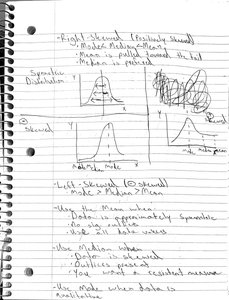 - Right-Skewed (Positively Skewed)
- Mode < Median < Mean
- Mean is pulled toward the tail
- Median is preferred
Symmetric
Distribution
Y
X
Skewed
Y
X
Skewed
Mean Median mode
mode median mean
- Left-Skewed (⊖ skewed)
Mode > Median > Mean
- Use the Mean when
- Data is approximately symmetric
- No big outliers
- Use all data values
- Use Median when
- Data is skewed
- Outliers present
- You want a resistant measure
- Use Mode when data is
qualitative